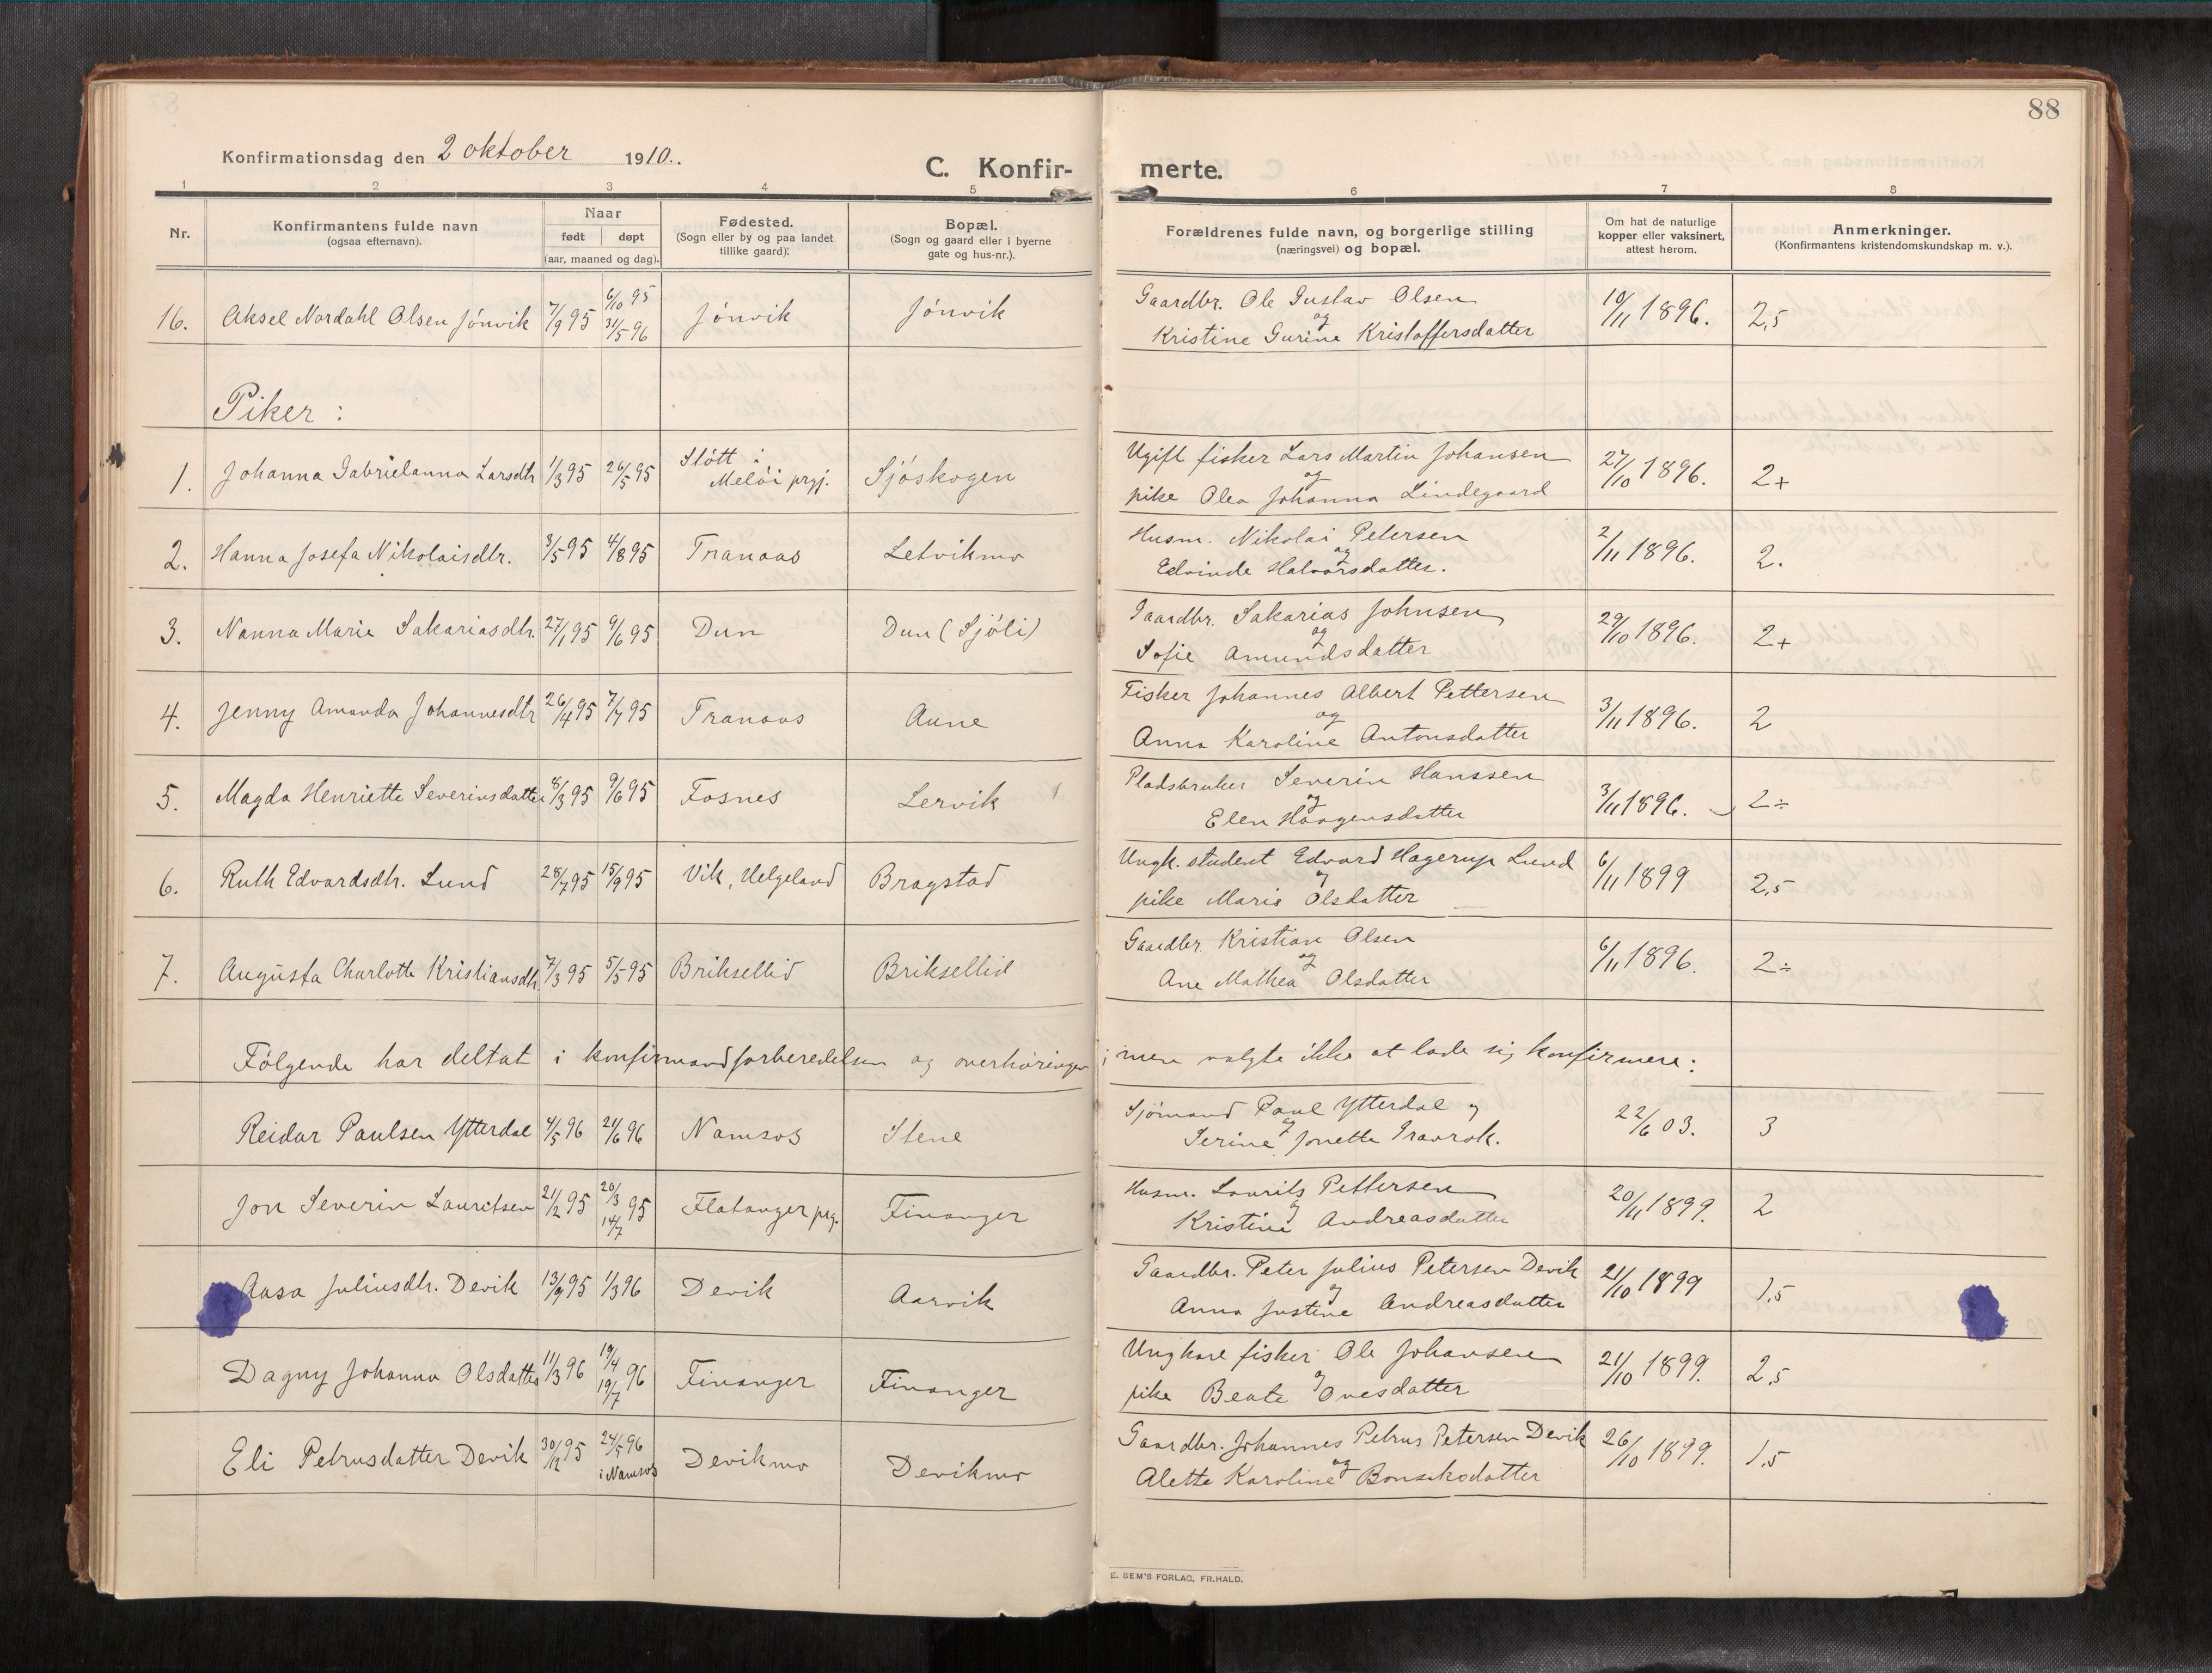 88
Konfirmationsdag den 2 oktober 1910.
C. Konfir- merte.
1 2 3 4 5 6 7 8
Nr.
Konfirmantens fulde navn
(ogsaa efternavn).
Naar
født døpt
(aar, maaned og dag).
Fødested.
(Sogn eller by og paa landet
tillike gaard).
Bopæl.
(Sogn og gaard eller i byerne
gate og hus-nr.).
Forældrenes fulde navn, og borgerlige stilling
(næringsvei) og bopæl.
Om hat de naturlige
kopper eller vaksinert,
attest herom.
Anmerkninger.
(Konfirmantens kristendomskundskap m. v.).
16. Aksel Nordahl Olsen Jönvik 7/9 95 6/10 95 31/5 96 Jönvik Jönvik Gaardbr. Ole Gustav Olsen og Kristine Gurine Kristoffersdatter 10/11 1896. 2,5
Piker:
1. Johanna Gabrielanna Larsdtr 1/3 95 26/5 95 Stött i Melöi prgj. Sjöskogen Ugift fisker Lars Martin Johansen og pike Olea Johanna Lindegaard 27/10 1896. 2+
2. Hanna Josefa Nikolaisdtr. 3/5 95 4/8 95 Tranaas Letvikmo Husm. Nikolai Petersen og Edvinde Halvorsdatter. 2/11 1896. 2.
3. Nanna Marie Sakariasdtr. 27/1 95 9/6 95 Dun Dun (Sjöli) Gaardbr. Sakarias Johnsen og Sofie Amundsdatter 29/10 1896. 2+
4. Jenny Amanda Johannesdtr 26/4 95 7/7 95 Tranaas Aune Fisker Johannes Albert Pettersen og Anna Karoline Antonsdatter 3/11 1896. 2
5. Magda Henriette Severinsdatter 8/3 95 9/6 95 Fosnes Lervik Pladsbruker Severin Hanssen og Elen Haagensdatter 3/11 1896. 2÷
6. Ruth Edvardsdtr. Lund 28/7 95 15/9 95 Vik, Helgeland Bragstad Ungk. student Edvard Hagerup Lund og pike Marie Olsdatter 6/11 1899 2,5
7. Augusta Charlotte Kristiansdtr. 7/3 95 5/5 95 Briksellid Briksellid Gaardbr. Kristian Olsen og Ane Mathea Olsdatter 6/11 1896. 2÷
Følgende har deltat i konfirmandforberedelsen og overhøringen; men valgte ikke at lade sig konfirmere:
Reidar Paulsen Ytterdal 4/5 96 21/6 96 Namsos Stene Sjömand Paul Ytterdal og Serine Jonette 22/6 03. 3
Jon Severin Lauritsen 21/2 95 20/3 14/7 95 Flatanger prg. Finanger Husm. Laurits Pettersen og Kristine Andreasdatter 20/11 1899. 2
Aasa Juliusdtr. Devik 13/9 95 1/3 96 Devik Aarvik Gaardbr. Peter Julius Petersen Devik og Anna Justine Andreasdatter 21/10 1899 1,5
Dagny Johanna Olsdatter 11/3 96 19/4 19/7 96 Finanger Finanger Ungkare fisker Ole Johansen og pike Beate Ovesdatter 21/10 1899. 2,5
Eli Petrusdatter Devik 30/12 95 24/5 96 i Namsos Devikmo Devikmo Gaardbr. Johannes Petrus Petersen Devik og Alette Karoline Bonsaksdatter 26/10 1899. 1,5
E. SEM'S FORLAG, FR.HALD.